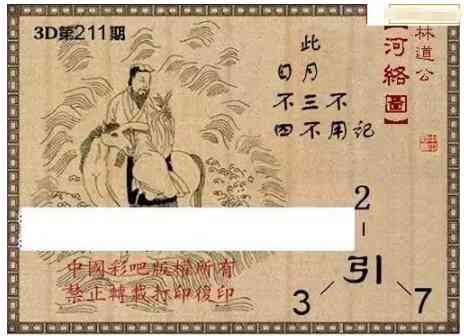 3D第211期
林道公
【河絡圖】
此
日月
不三不
四不用記
2
引
3 7
中國彩吧版權所有
禁止轉載打印復印